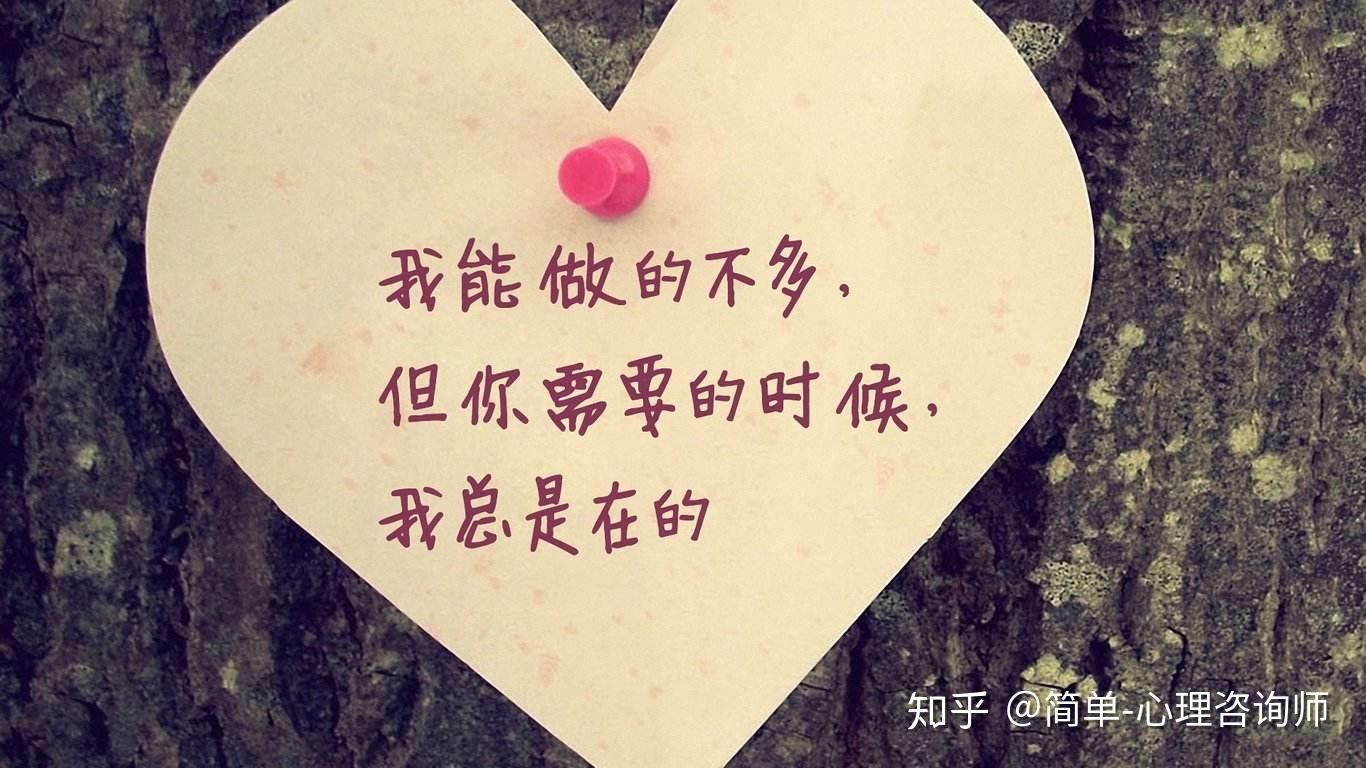 我能做的不多，
但你需要的时候，
我总是在的
知乎 @简单-心理咨询师